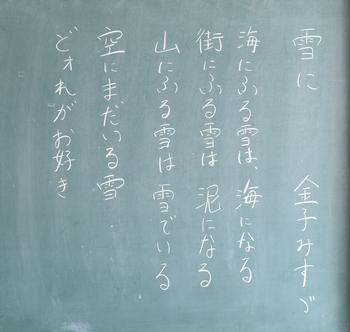 雪に 金子みすゞ
海にふる雪は、海になる
街にふる雪は 泥になる
山にふる雪は 雪でいる
空にまだいる雪
どォれがお好き